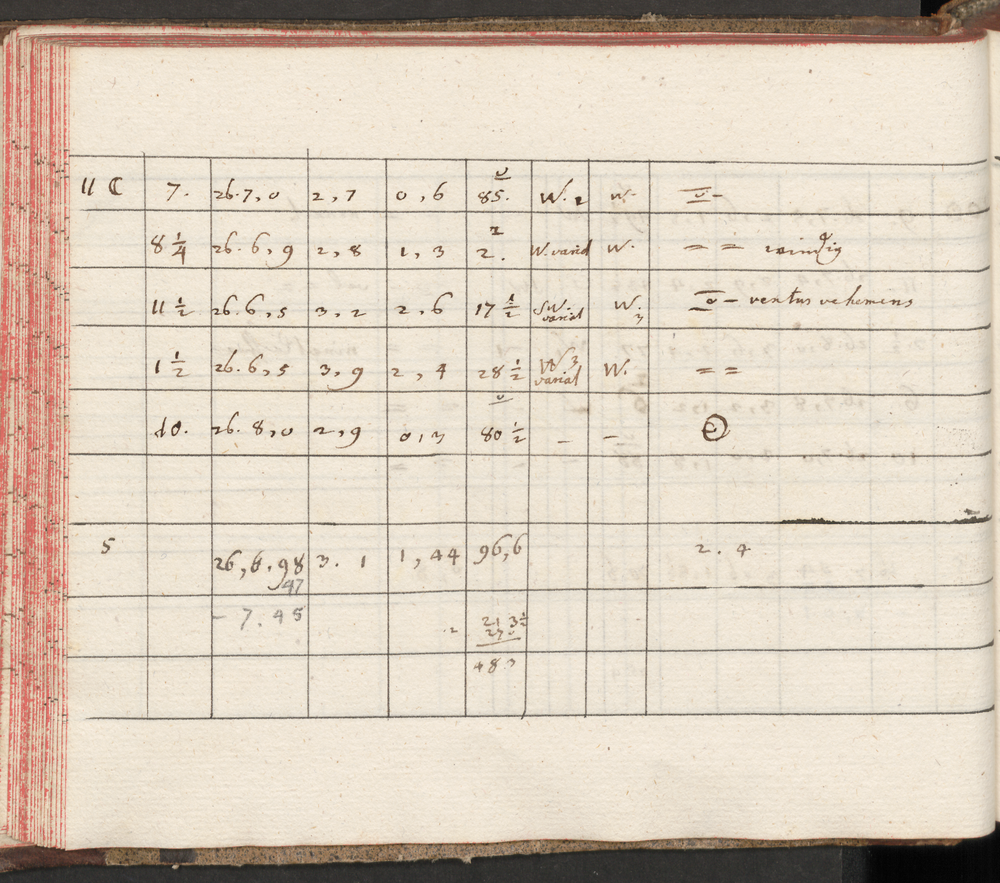 11 ☾ 7. 26.7,0 2,7 0,6 85. W.2 W. =o-
8 1/4 26.6,9 2,8 1,3 2. W.variab W. = = windig
11 1/2 26.6,5 3,2 2,6 17 1/2 SW. variab W.3 =o- ventus vehemens
1 1/2 26.6,5 3,9 2,4 28 1/2 W3 variab W. = =
10. 26.8,0 2,9 0,3 80 1/2 - - ☉
5 26,6,98 3.1 1,44 96,6 2.4
47
- 7.45 21 3 1/2
27
48 3